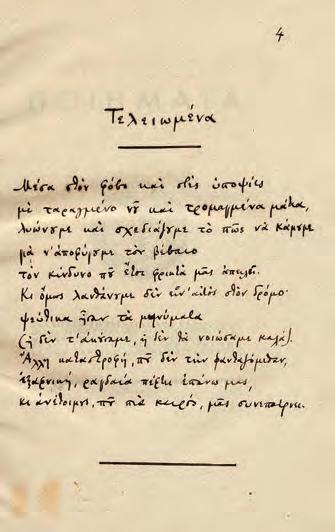 4
Τελειωμένα
Μέσα στον φόβο καὶ στὲς ὑποψίες
μὲ ταραγμένο νοῦ καὶ τρομαγμένα μάτια,
λυώνουμε καὶ σχεδιάζουμε τὸ πῶς νὰ κάμουμε
γιὰ ν' ἀποφύγουμε τὸν βέβαιο
τὸν κίνδυνο ποῦ ἔτσι φρικτὰ μᾶς ἀπειλεῖ.
Κι ὅμως λανθάνουμε δὲν εἶν' αὐτὸς στὸν δρόμο·
ψεύτικα ἦσαν τὰ μηνύματα
(ἢ δὲν τ' ἀκούσαμε, ἢ δὲν τὰ νοιώσαμε καλά).
Ἄλλη καταστροφή, ποῦ δὲν τὴν φανταζόμεθαν,
ἐξαφνική, ραγδαία πέφτει ἐπάνω μας,
κι ἀνέτοιμους, ποῦ πιὰ καιρός, μᾶς συνεπαίρνει.